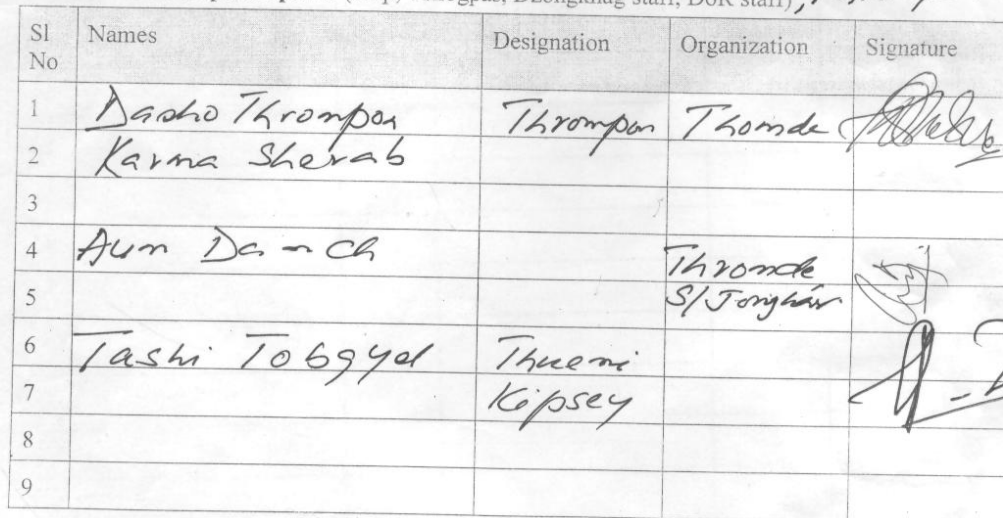 Dzongkhag staff, DoR staff),
Sl No Names Designation Organization Signature
1 Dasho Thrompon Thrompon Thomde
2 Karma Sherab
3
4 Aum Thromde
5 S/Jongkhar
6 Tashi Tobgyel Thuemi
7 Kipsey
8
9